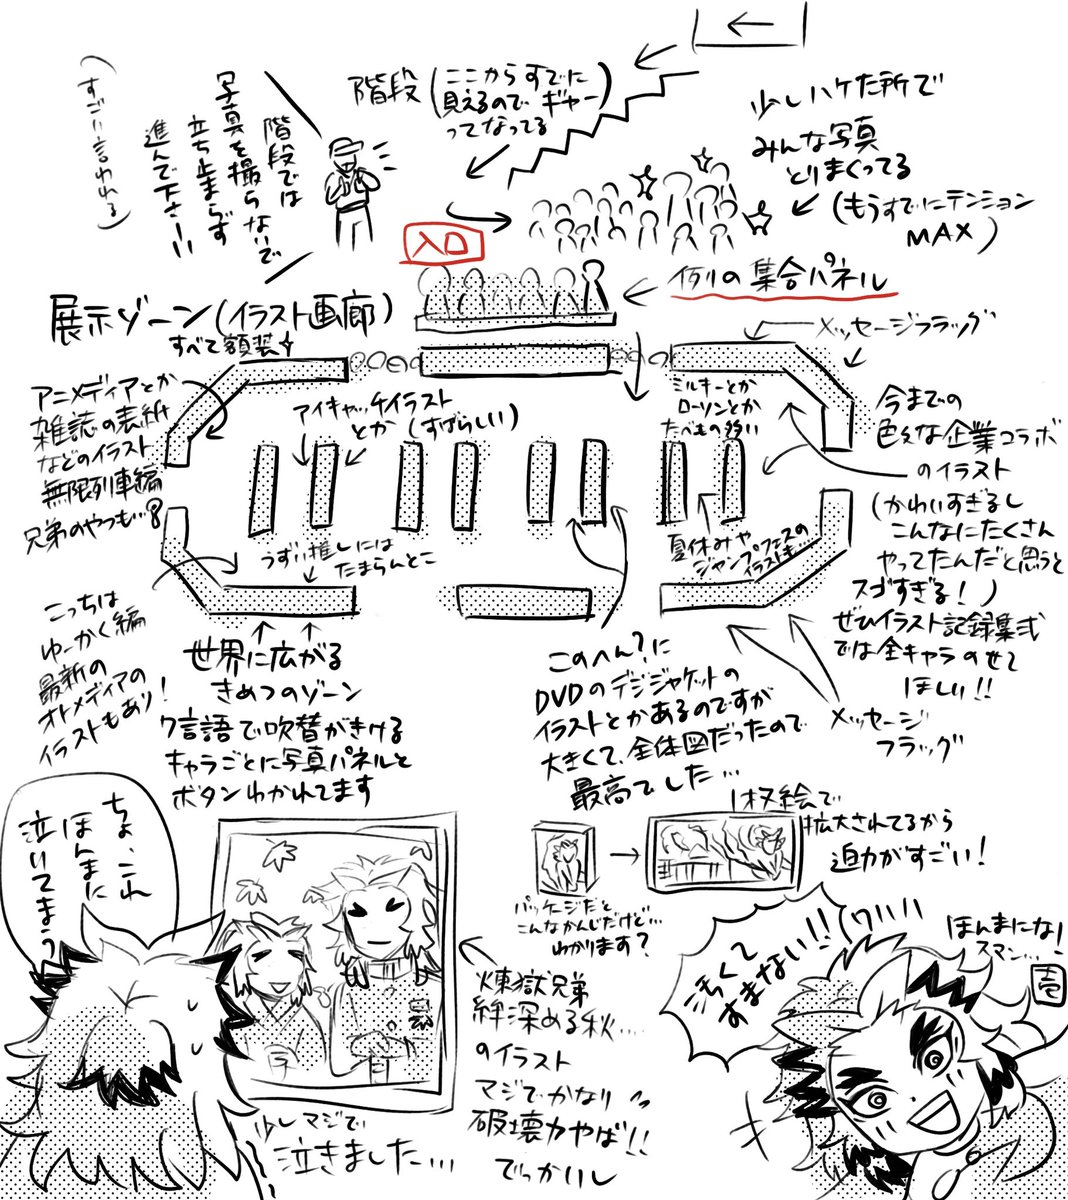 ←
階段
(ここからすでに
見えるので ギャー
ってなってる
少しハケた所で
みんな写真
とりまくってる
(もうすでにテンション
MAX)
階段では
写真を撮らないで
立ち止まらず
進んで下さーい
(すごい言われる)
入口
例の集合パネル
展示ゾーン(イラスト画廊)
すべて額装
メッセージフラッグ
アニメディアとか
雑誌の表紙
などのイラスト
無限列車編
兄弟のやつも…
アイキャッチイラスト
とか(すばらしい)
ミルキーとか
ローソンとか
たべもの多い
今までの
色んな企業コラボ
のイラスト
(かわいすぎるし
こんなにたくさん
やってたんだと思うと
スゴすぎる!)
ぜひイラスト記録集弐
では全キャラのせて
ほしい!!
うずい推しには
たまらんとこ
夏休みや
ジャンプフェスの
イラストも…
こっちは
ゆーかく編
最新の
オトメディアの
イラストもあり!
世界に広がる
きめつのゾーン
7言語で吹替がきける
キャラごとに写真パネルと
ボタンわかれてます
このへん?に
DVDのデジジャケットの
イラストとかあるのですが
大きくて、全体図だったので
最高でした…
メッセージ
フラッグ
1枚絵で
拡大されてるから
迫力がすごい!
パッケージだと
こんなかんじだけど…
わかります?
ちょ、これ
ほんまに
泣いてまう
煉獄兄弟
絆深める秋…
のイラスト
マジでかなり
破壊力やば!!
でっかいし
少しマジで
泣きました…
汚くて
すまない!!
ワハハハ
ほんまにな!
スマン…
壱